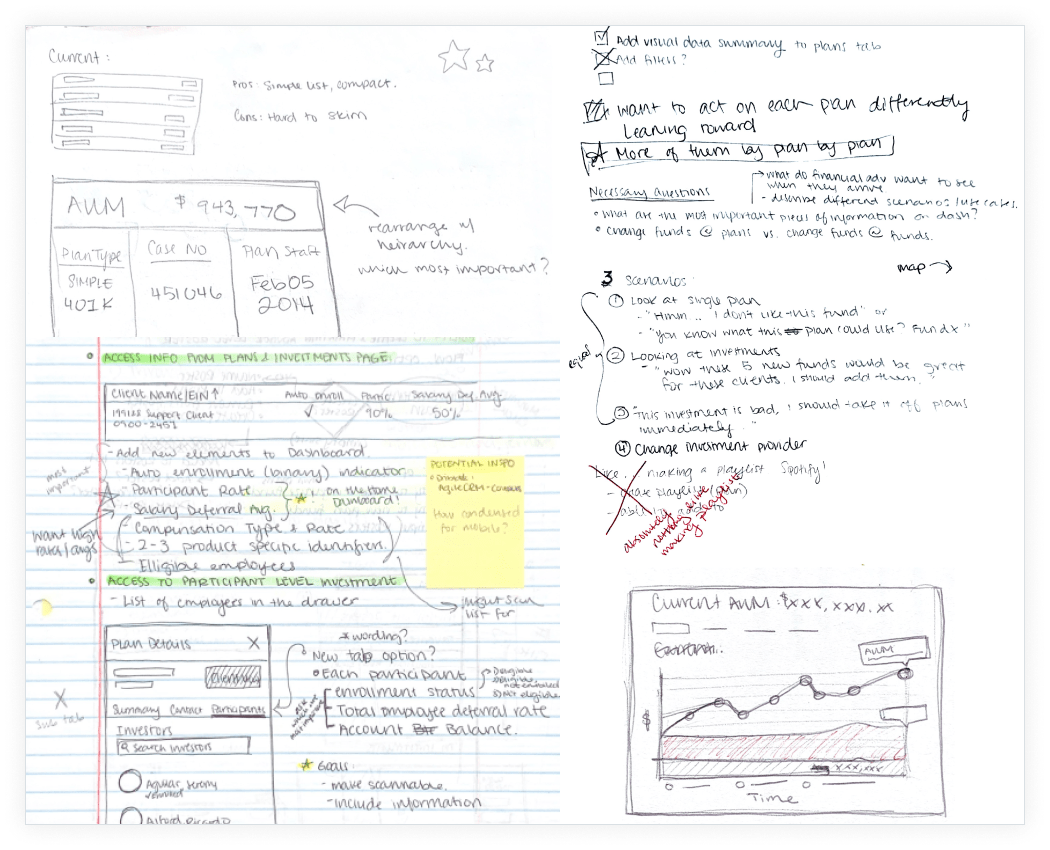 Current:
Pros: Simple list, compact.
Cons: Hard to skim
AUM $943,770
Plan Type
SIMPLE
401K
Case NO
451046
Plan Start
Feb 05
2014
rearrange w/
heirarchy.
which most important?
ACCESS INFO FROM PLANS & INVESTMENTS PAGE
Client Name/EIN ↑ Auto enroll Partic. Salary Def. Avg.
199125 Support Client ✓ 90% 50%
0900-2457
- Add new elements to Dashboard.
- Auto enrollment (binary) indicator
- Participant Rate
- Salary Deferral Avg.
on the Home
Dashboard!
- Compensation Type + Rate
- 2-3 product specific identifiers.
- Elligible employees
most
important
Want high
rates/avgs
POTENTIAL INFO
AgileCRM - Contacts
How condensed
for mobile?
ACCESS TO PARTICIPANT LEVEL Investment
- List of employees in the drawer
list for
Plan Details X
Summary Contact Participants
Investors
Search Investors
Aguilar, Jeremy
Enrolled
X
Sub tab
* wording?
New tab option?
Each participant
enrollment status
Total employee deferral rate
Account Balance.
not enrolled
Not eligible
Goals:
- make scannable.
- include information
Add visual data summary to plans tab
Add filters?
Want to act on each plan differently
Leaning toward
More of them by plan by plan
Necessary Questions
what do financial adv want to see
when they arrive
- describe different scenarios/use cases.
• What are the most important pieces of information on dash?
• Change funds @ plans vs. change funds @ funds.
map →
3 scenarios:
① Look at single plan
- "Hmm .. I don't like this fund" or
- "You know what this plan could use? Fund X"
equal
② Looking at investments
- "Wow these 5 new funds would be great
for these clients. I should add them."
③ "This investment is bad, I should take it off plans
immediately."
④ Change investment provider
Like... making a playlist Spotify!
- create playlist (plan)
- ability to add to
absolutely
nothing like
making playlist
Current AUM: $xxx, xxx. xx
AUM
$
xxx,xxx
Time